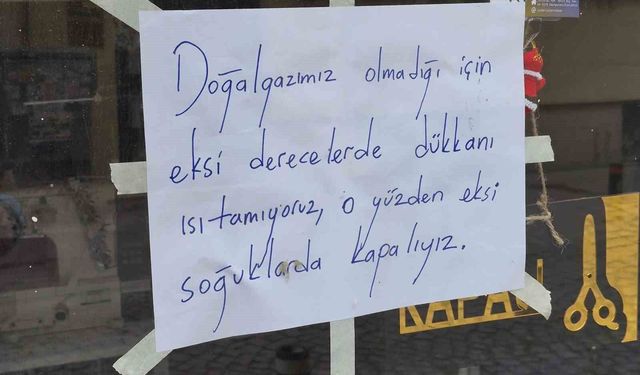 Doğalgazımız olmadığı için
eksi derecelerde dükkanı
ısıtamıyoruz, o yüzden eksi
soğuklarda kapalıyız.
KAPALI